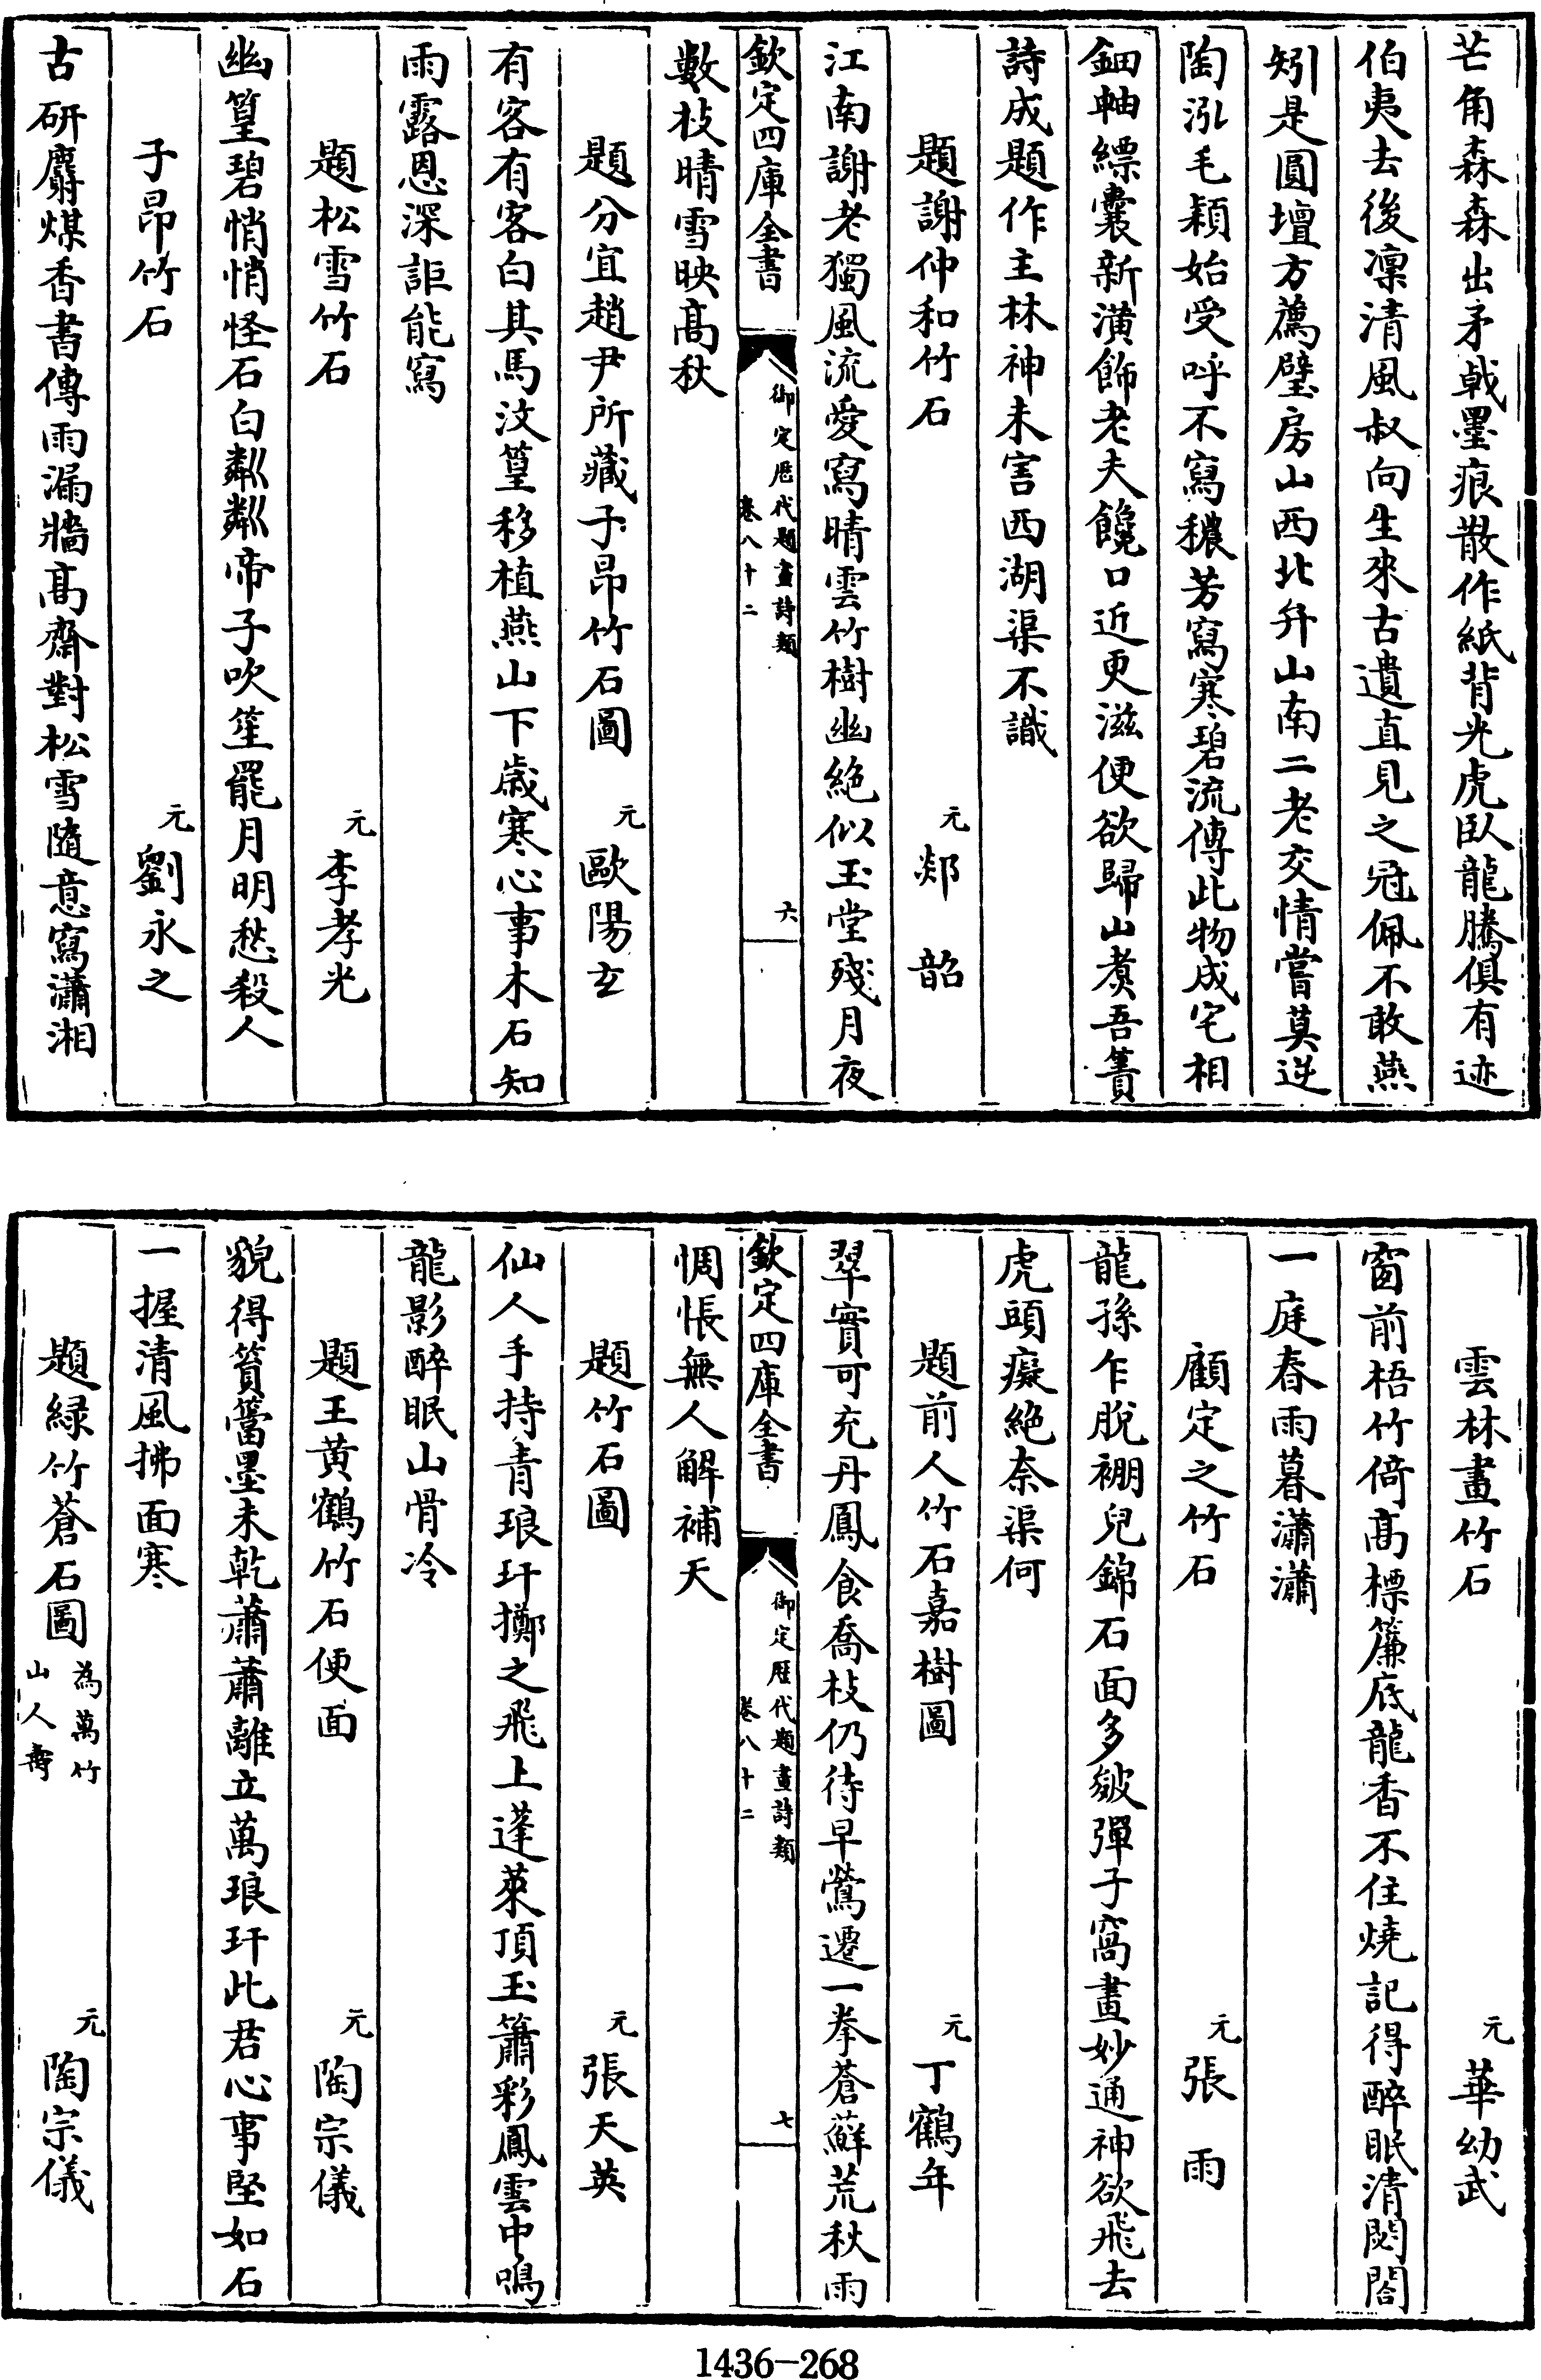 芒角森森出矛戟墨痕散作紙背光虎臥龍騰俱有迹
伯夷去後凜清風叔向生來古遺直見之冠佩不敢燕
矧是圓壇方薦璧房山西北弁山南二老交情嘗莫逆
陶泓毛穎始受呼不寫穠芳寫寒碧流傳此物成宅相
鈿軸縹囊新潢飾老夫饞口近更滋便欲歸山煑吾簀
詩成題作主林神未害西湖渠不識
題謝仲和竹石 元 郯 韶
江南謝老獨風流愛寫晴雲竹樹幽絶似玉堂殘月夜
欽定四庫全書 御定歷代題畫詩類 卷八十二 六
數枝晴雪映髙秋
題分宜趙尹所藏子昂竹石圖 元 歐陽玄
有客有客白其馬汶篁移植燕山下歲寒心事木石知
雨露恩深詎能寫
題松雪竹石 元 李孝光
幽篁碧悄悄怪石白粼粼帝子吹笙罷月明愁殺人
子昂竹石 元 劉永之
古研麝煤香書傳雨漏牆髙齋對松雪隨意寫瀟湘
雲林畫竹石 元 華幼武
窗前梧竹倚髙標簾底龍香不住燒記得醉眠清閟閣
一庭春雨暮瀟瀟
顧定之竹石 元 張 雨
龍孫乍脫裯兒錦石面多皴彈子窩畫妙通神欲飛去
虎頭癡絶奈渠何
題前人竹石嘉樹圖 元 丁鶴年
翠實可充丹鳳食喬枝仍待早鶯遷一拳蒼蘚荒秋雨
欽定四庫全書 御定歷代題畫詩類 卷八十二 七
惆悵無人解補天
題竹石圖 元 張天英
仙人手持青琅玕擲之飛上蓬萊頂玉簫彩鳳雲中鳴
龍影醉眠山骨冷
題王黄鶴竹石便面 元 陶宗儀
貌得篔簹墨未乾蕭蕭離立萬琅玕此君心事堅如石
一握清風拂面寒
題緑竹蒼石圖 為萬竹山人壽 元 陶宗儀
1436-268